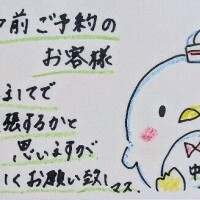 前ご予約の
お客様
まして
張するかと
思いますが
しくお願い致しマス。
中